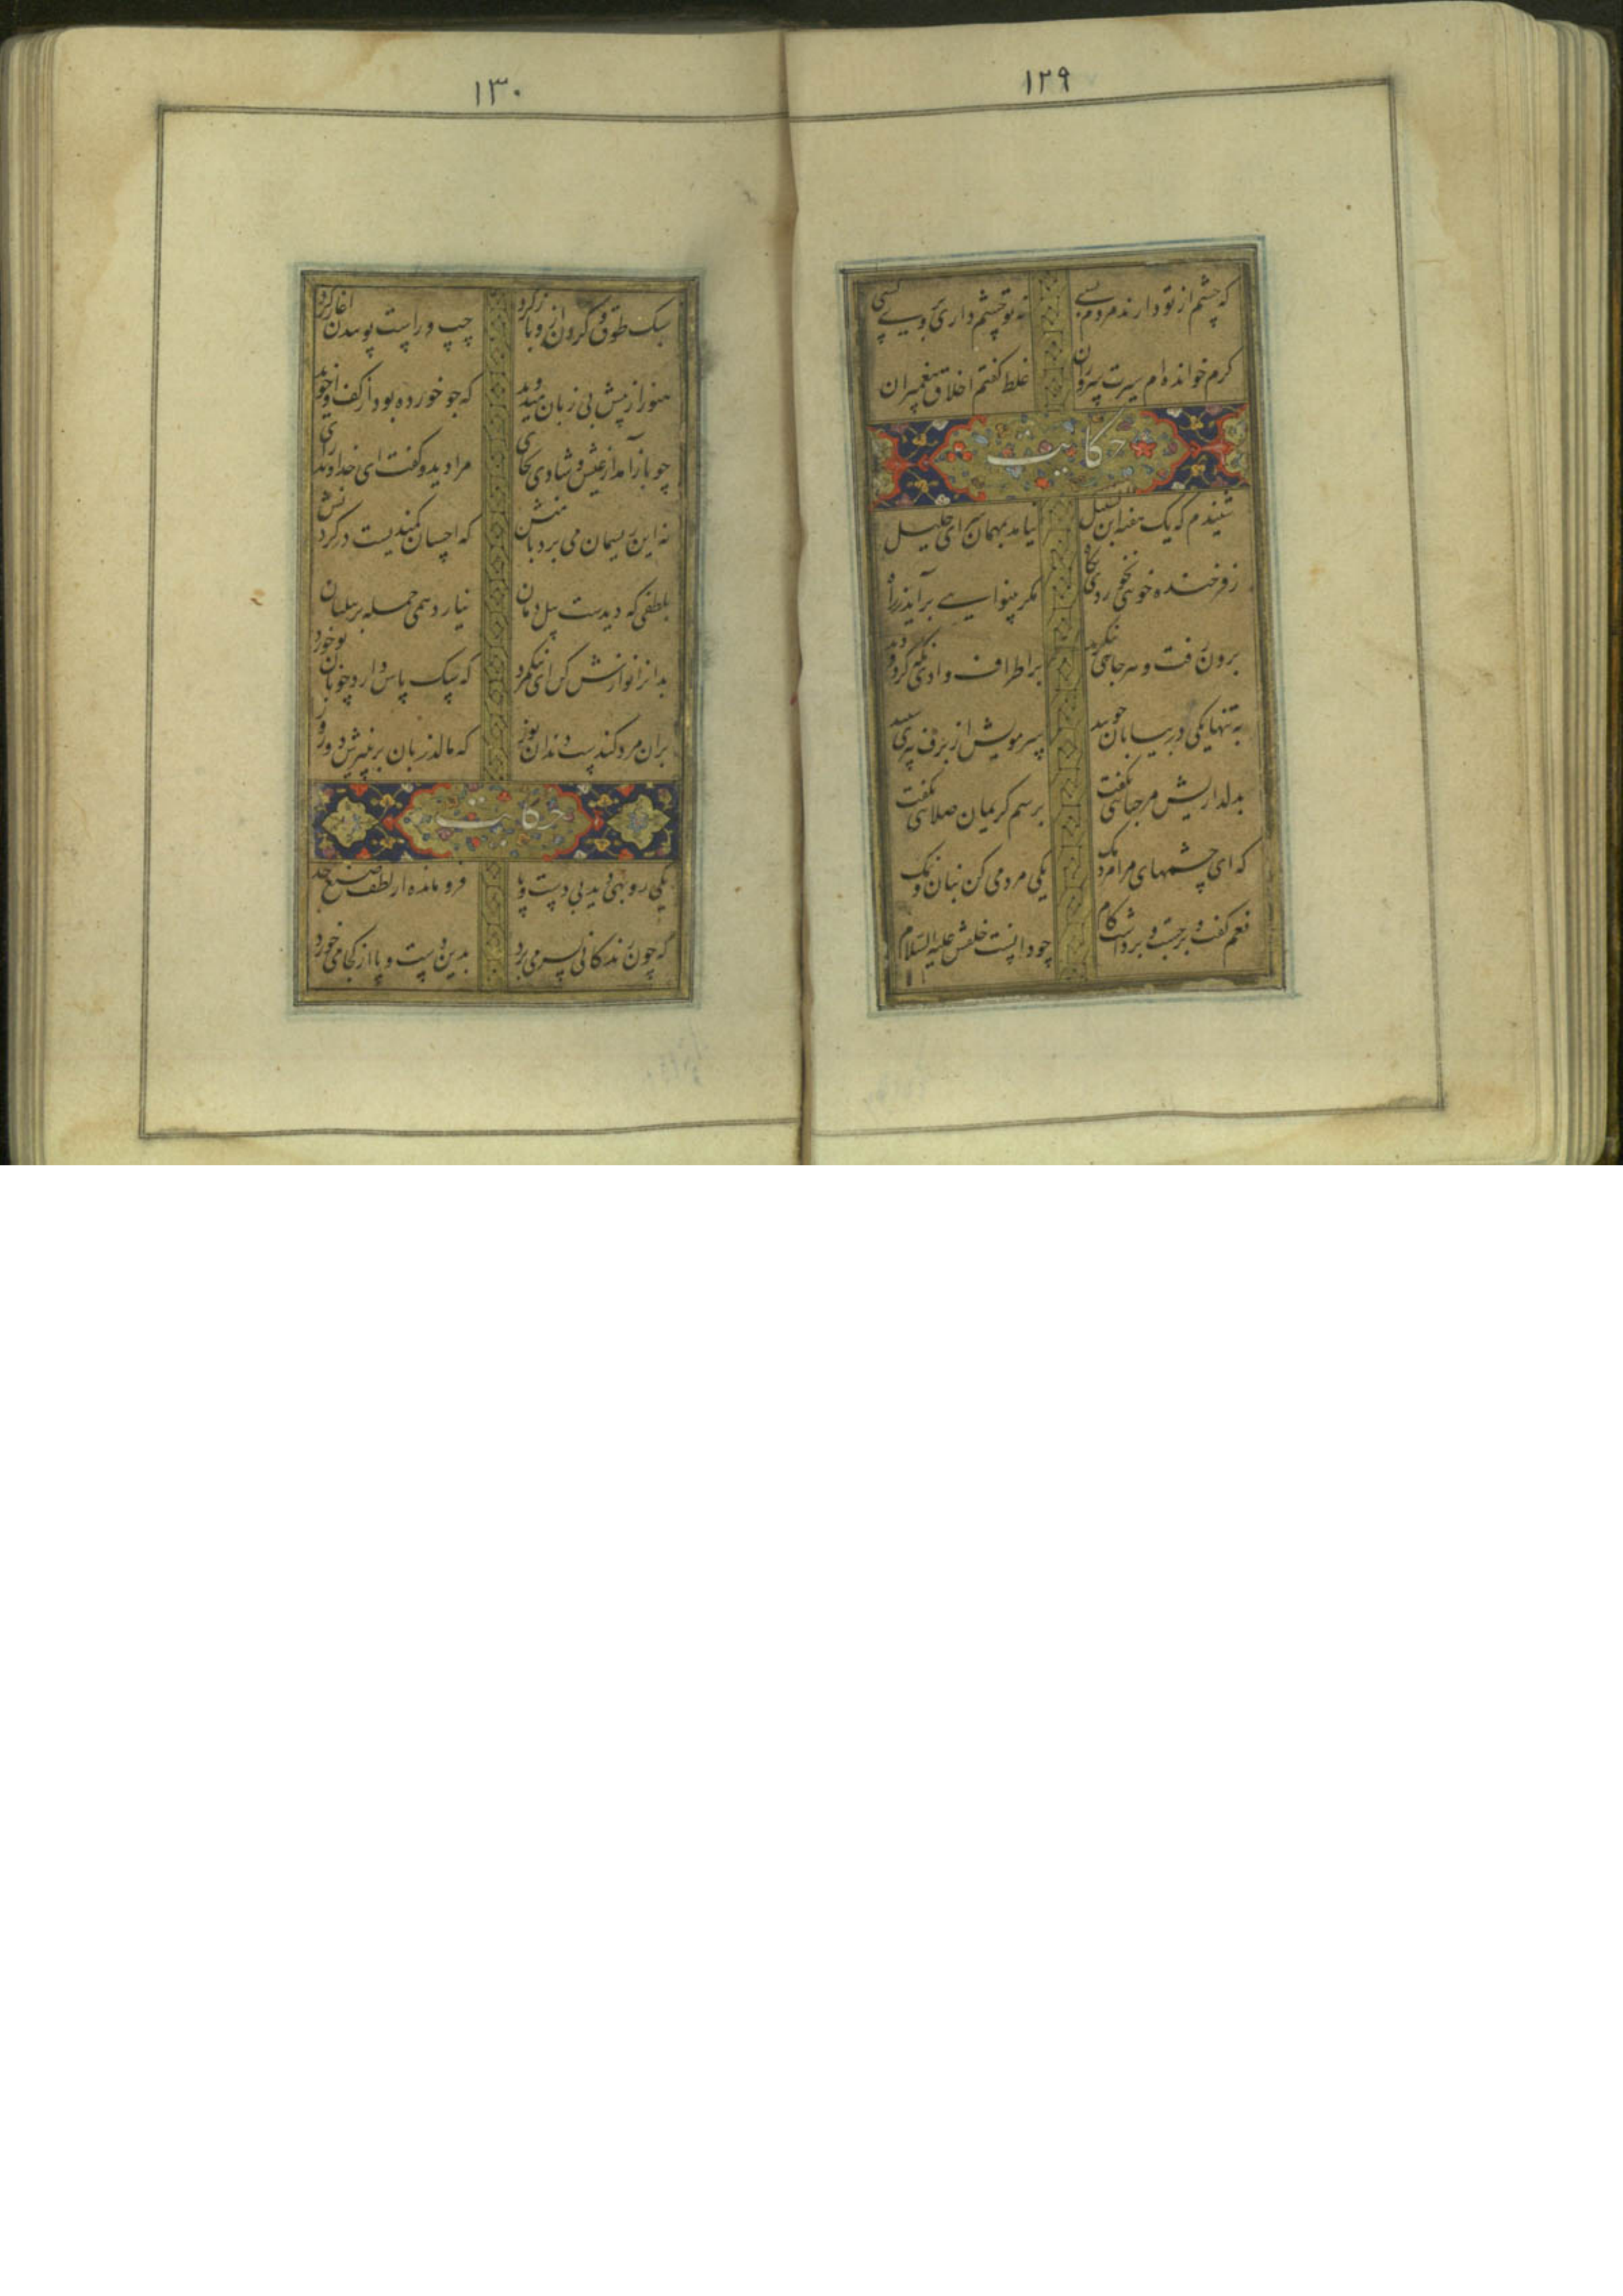 ۱۲۹
که چشم از تو دارند مردم بسی نه تو چشم داری بروی کسی
کرم خوانده‌ام سیرت سروران غلط گفتم اخلاق پیغمبران
حکایت
شنیدم که یک هفته ابن السبیل نیامد بمهمان سرای خلیل
ز فرخنده خویی نخوردی بگاه مگر بینوایی برآید ز راه
برون رفت و هر جانبی بنگرید بر اطراف وادی نگه کرد و دید
به تنها یکی در بیابان چو بید سر و مویش از برف پیری سپید
بدلداریش مرحبایی بگفت برسم کریمان صلایی بگفت
که ای چشمهای مرا مردمک یکی مردمی کن بنان و نمک
نعم گفت و برجست و برداشت گام چو دانست خلقش علیه السلام
۱۳۰
سبک طوق و زنجیر ازو باز کرد چپ و راست پوییدن آغاز کرد
هنوز از پیش بی زبان میدوید که جو خورده بود از کف او خوید
چو باز آمد از عیش و شادی بجای مرا دید و گفت ای خداوند رای
نه این ریسمان می برد با منش که احسان کمندیست در گردنش
بلطفی که دیدست پیل دمان نیارد همی حمله بر پیلبان
بدانرا نوازش کن ای نیکمرد که سگ پاس دارد چو نان تو خورد
بران مرد کندست دندان یوز که مالد زبان بر پنیرش دو روز
حکایت
یکی روبهی دید بی دست و پا فرو مانده از لطف صنع خدا
که چون زندگانی بسر می برد بدین دست و پا از کجا می خورد